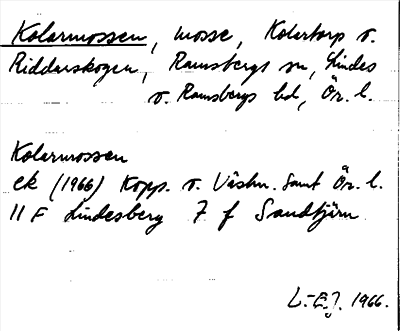 Kolarmossen, mosse, Kolartorp o.
Riddarskogen, Ramsbergs sn, Lindes
o. Ramsbergs bd, Ör. l.
Kolarmossen
ek (1966) Kopp. o. Västm. samt Ör. l.
11 F Lindesberg 7 f Sandtjärn
L.-E. J. 1966.